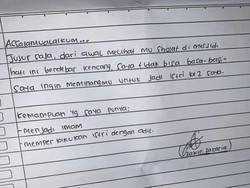 Assalamualaikum...
Jujur saja, dari awal melihat mu shalat di masjid
hati ini berdebar kencang, saya tidak bisa basa-basi
saya ingin meminangmu untuk jadi istri ke 2 saya.
Kemampuan yg saya punya:
- menjadi imam
- memperlakukan istri dengan adil.